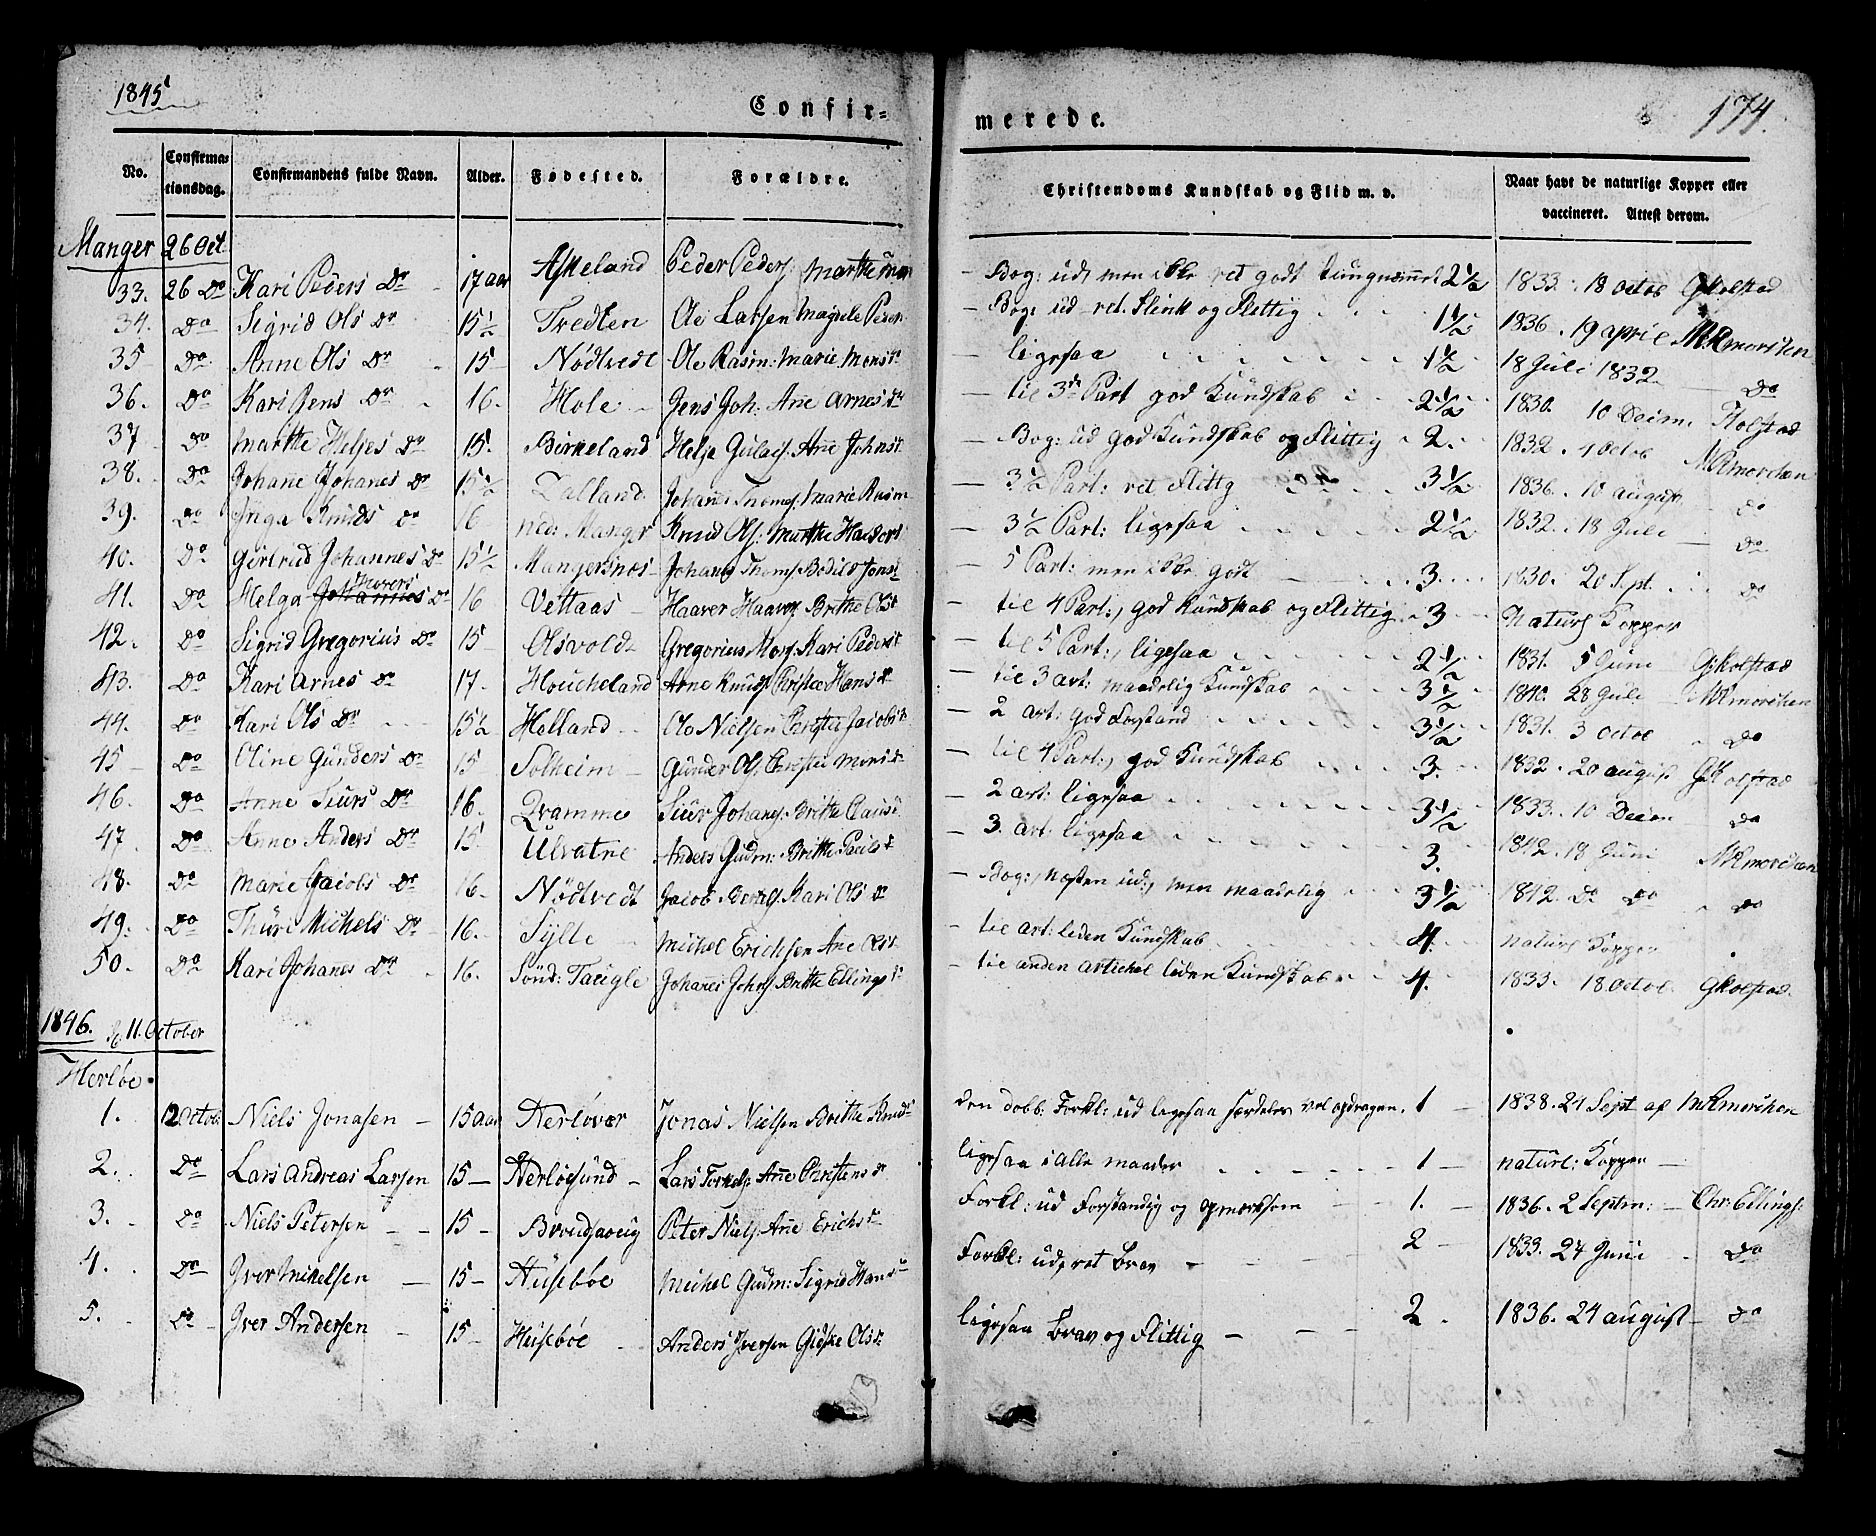 1845
Confir=
merede.
174.
No.
Confirma=
tionsdag.
Confirmandens fulde Navn.
Alder.
Fødested.
Forældre.
Christendoms Kundskab og Flid m. v.
Naar havt de naturlige Kopper eller
vaccineret. Attest derom.
Manger 26 Oct.
33. 26 Do Kari Peders Dr 17 aar Askeland Peder Peders: Marthe — Bog: ud, men ikke ret godt 2 1/2 1833. 18 octob G Kolstad
34. Do Sigrid Ols Dr 15 1/2 Tredten Ole Larsen — Bog: ud ret flink og flittig 1 1/2 1836. 19 april
35 Do Anne Ols Dr 15 Nödtvedt Ole Rasm: Marie Mons dr — ligesaa 1 1/2 18 Juli 1832. Do
36. Do Kari Jens Dr 16. Hole Jens Joh: Ane Arnes dr — til 3de Part god Kundskab 2 1/2 1830. 10 Kolstad
37 Do Marthe Heljes Dr 15. Birkeland Helje Ane Johns — Bog: ud god Kundskab og flittig 2. 1832. 4 octob
38. Do Johane Johanes Dr 15 1/2 Johans Thomes: Marie Rasm — 3 1/2 Part: ret flittig 3 1/2 1836. 10 august Do
39. Do Knuds Dr 16 Manger Knud Ols: Marthe — 3 1/2 Part: ligesaa 2 1/2 1832. 18 Juli Do
40. Do Gürtrud Johannes Dr 15 1/2 Mangersnes Johans Thoms: Bodild Jens — 5 Part: men ikke godt 3. 1830. 20 Sept. Do
41. Do Helga Johannes Dr 16 Vettaas Haaver Haavers Brithe Ols — til 4 Part:, god Kundskab og flittig 3 Naturl Kopper
42. Do Sigrid Gregorius Dr 15 Olsvold Gregorius Mons: Kari Peders — til 5 Part:, ligesaa 2 1/2 1831. 5 Juni G Kolstad
43. Do Kari Arnes Dr 17. Arne Knuds Christie Hans dr — til 3 art: maadelig Kundskab 3 1/2 1840. 28 Juli
44. Do Kari Ols Dr 15 1/2 Helland Ole Nielsen Christie Jacobs dr — 2 art: god Forstand 3 1/2 1831. 3 octob Do
45 Do Oline Gunders Dr 15 Solheim Gunder Ols: Christie Mons dr — til 4 Part:, god Kundskab 3. 1832. 20 august G Kolstad
46. Do Anne Siurs Dr 16. Qvamme Siur Johans: Britte — 2 art: ligesaa 3 1/2 1833. 10 Do
47 Do Anne Anders Dr 15. Ulvatne Anders Gudm: Britte — 3. art: ligesaa 3. 1842. 18 Juni
48. Do Marie Jacobs Dr 16. Nödtvedt Jacob Kari Ols dr — Bog:, næsten ud:, men maadelig 3 1/2 1842. Do Do Do
49. Do Thuri Michels Dr 16. Sylte Michel Erichsen Ane Ols dr — til art: liden Kundskab 4. naturl Kopper
50. Do Kari Johanes Dr 16. Sönd: Johanes Johs: Britte Ellings dr — til anden artichel liden Kundskab 4. 1833. 18 octob. G Kolstad.
1846. 11. October
Herlöe.
1. 12 octob: Niels Jonasen 15 aar Herlövær Jonas Nielsen Brithe Knuds den dobb. Forkl: ud ligesaa særdeles vel opdragen. 1 1838. 24 Sept af
2. Do Lars Andreas Larsen 15 Herlösund Lars Torkels: Ane Christens dr ligesaa i alle maader 1 naturl: Kopper
3. Do Niels Petersen 15 Peter Niels: Ane Erichs dr Forkl: ud forstandig og opmerksom 1. 1836. 2 Septm: Chr. Ellings:
4. Do Iver Mikelsen 15 Husebøe Michel Gudm: Sigrid Hans dr Forkl: ud, ret brav 2 1833. 24 Juni Do
5. Do Iver Andersen 15 Husebøe Anders Iversen Gidske Ols dr ligesaa brav og flittig 2. 1836. 24 august Do